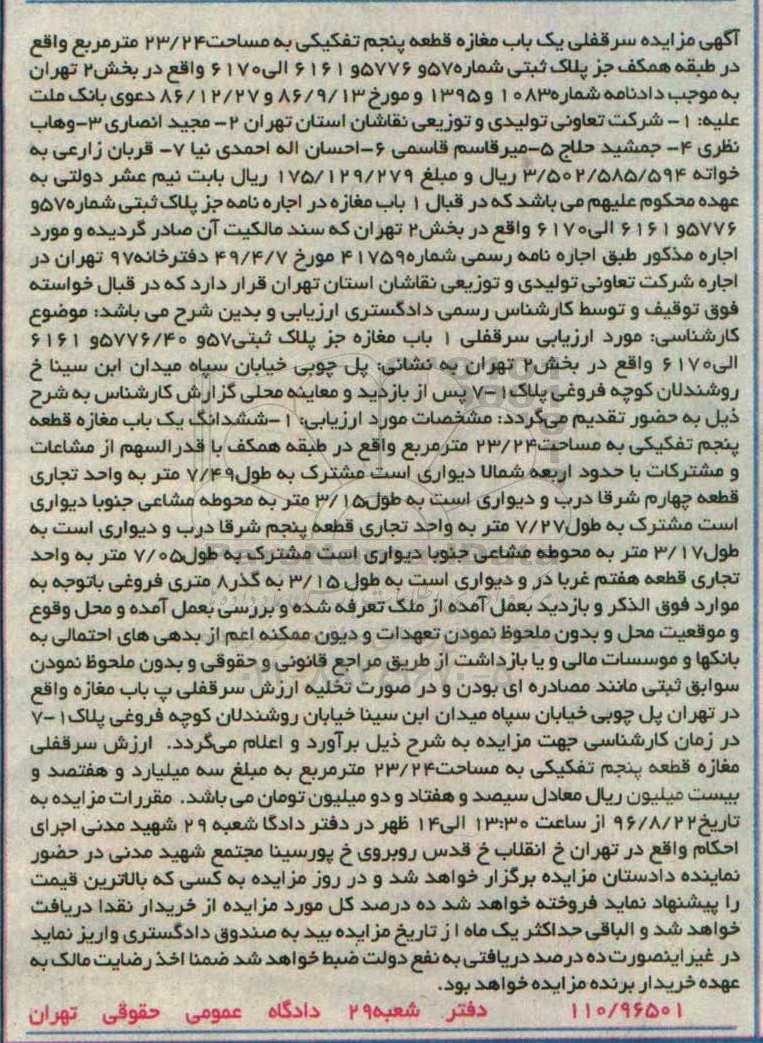 آگهی مزایده سرقفلی یک باب مغازه قطعه پنجم تفکیکی به مساحت۲۳/۲۴ مترمربع واقع
در طبقه همکف جز پلاک ثبتی شماره۵۷و ۵۷۷۶و ۶۱۶۱ الی۶۱۷۰ واقع در بخش۲ تهران
به موجب دادنامه شماره۱۰۸۳ و۱۳۹۵ و مورخ ۸۶/۹/۱۳ و ۸۶/۱۲/۲۷ دعوی بانک ملت
علیه: ۱- شرکت تعاونی تولیدی و توزیعی نقاشان استان تهران ۲- مجید انصاری ۳-وهاب
نظری ۴- جمشید حلاج ۵-میرقاسم قاسمی ۶-احسان اله احمدی نیا ۷- قربان زارعی به
خواته ۳/۵۰۲/۵۸۵/۵۹۴ ریال و مبلغ ۱۷۵/۱۲۹/۲۷۹ ریال بابت نیم عشر دولتی به
عهده محکوم علیهم می باشد که در قبال ۱ باب مغازه در اجاره نامه جز پلاک ثبتی شماره۵۷و
۵۷۷۶و ۶۱۶۱ الی۶۱۷۰ واقع در بخش۲ تهران که سند مالکیت آن صادر گردیده و مورد
اجاره مذکور طبق اجاره نامه رسمی شماره۴۱۷۵۹ مورخ ۴۹/۴/۷ دفترخانه۹۷ تهران در
اجاره شرکت تعاونی تولیدی و توزیعی نقاشان استان تهران قرار دارد که در قبال خواسته
فوق توقیف و توسط کارشناس رسمی دادگستری ارزیابی و بدین شرح می باشد: موضوع
کارشناسی: مورد ارزیابی سرقفلی ۱ باب مغازه جز پلاک ثبتی۵۷و ۵۷۷۶/۴۰و ۶۱۶۱
الی۶۱۷۰ واقع در بخش۲ تهران به نشانی: پل چوبی خیابان سپاه میدان ابن سینا خ
روشندلان کوچه فروغی پلاک۱-۷ پس از بازدید و معاینه محلی گزارش کارشناس به شرح
ذیل به حضور تقدیم می‌گردد: مشخصات مورد ارزیابی: ۱-ششدانگ یک باب مغازه قطعه
پنجم تفکیکی به مساحت۲۳/۲۴ مترمربع واقع در طبقه همکف با قدرالسهم از مشاعات
و مشترکات با حدود اربعه شمالا دیواری است مشترک به طول۷/۴۹ متر به واحد تجاری
قطعه چهارم شرقا درب و دیواری است به طول۳/۱۵ متر به محوطه مشاعی جنوبا دیواری
است مشترک به طول۷/۲۷ متر به واحد تجاری قطعه پنجم شرقا درب و دیواری است به
طول۳/۱۷ متر به محوطه مشاعی جنوبا دیواری است مشترک به طول۷/۰۵ متر به واحد
تجاری قطعه هفتم غربا در و دیواری است به طول ۳/۱۵ به گذر۸ متری فروغی باتوجه به
موارد فوق الذکر و بازدید بعمل آمده از ملک تعرفه شده و بررسی بعمل آمده و محل وقوع
و موقعیت محل و بدون ملحوظ نمودن تعهدات و دیون ممکنه اعم از بدهی های احتمالی به
بانکها و موسسات مالی و یا بازداشت از طریق مراجع قانونی و حقوقی و بدون ملحوظ نمودن
سوابق ثبتی مانند مصادره ای بودن و در صورت تخلیه ارزش سرقفلی پ باب مغازه واقع
در تهران پل چوبی خیابان سپاه میدان ابن سینا خیابان روشندلان کوچه فروغی پلاک۱-۷
در زمان کارشناسی جهت مزایده به شرح ذیل برآورد و اعلام می‌گردد. ارزش سرقفلی
مغازه قطعه پنجم تفکیکی به مساحت۲۳/۲۴ مترمربع به مبلغ سه میلیارد و هفتصد و
بیست میلیون ریال معادل سیصد و هفتاد و دو میلیون تومان می باشد. مقررات مزایده به
تاریخ۹۶/۸/۲۲ از ساعت ۱۳:۳۰ الی۱۴ ظهر در دفتر دادگا شعبه ۲۹ شهید مدنی اجرای
احکام واقع در تهران خ انقلاب خ قدس روبروی خ پورسینا مجتمع شهید مدنی در حضور
نماینده دادستان مزایده برگزار خواهد شد و در روز مزایده به کسی که بالاترین قیمت
را پیشنهاد نماید فروخته خواهد شد ده درصد کل مورد مزایده از خریدار نقدا دریافت
خواهد شد و الباقی حداکثر یک ماه از تاریخ مزایده بید به صندوق دادگستری واریز نماید
در غیر اینصورت ده درصد دریافتی به نفع دولت ضبط خواهد شد ضمنا اخذ رضایت مالک به
عهده خریدار برنده مزایده خواهد بود.
۱۱۰/۹۶۵۰۱ دفتر شعبه۲۹ دادگاه عمومی حقوقی تهران